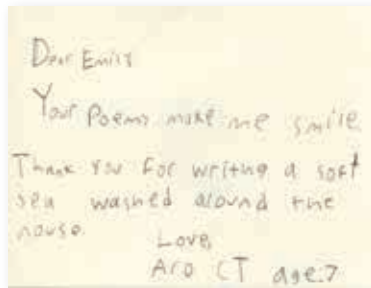 Dear Emily
Your Poems make me smile
Thank You For writing a soft
sea washed around the
house.
Love,
Aro CT age:7